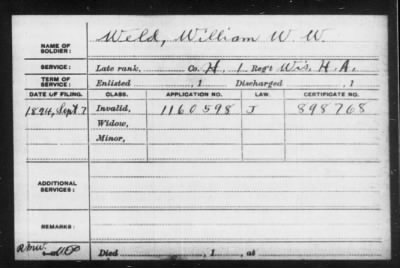 NAME OF SOLDIER: Weld, William W. W.
SERVICE: Late rank, Co. H, 1 Reg't Wis. H. A.
TERM OF SERVICE: Enlisted , 1 Discharged , 1
DATE OF FILING. CLASS. APPLICATION NO. LAW. CERTIFICATE NO.
1894, Sept 7 Invalid, 1160598 J 898768
Widow,
Minor,
ADDITIONAL SERVICES:
REMARKS:
Died , 1 , at